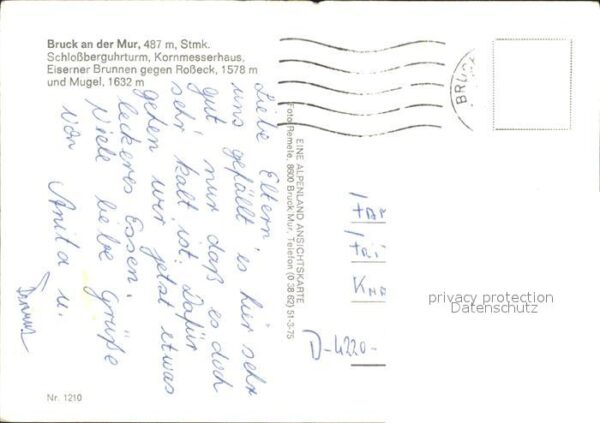 Bruck an der Mur, 487 m, Stmk.
Schloßberguhrturm, Kornmesserhaus,
Eiserner Brunnen gegen Roßeck, 1578 m
und Mugel, 1632 m
Liebe Eltern,
uns gefällt es hier sehr
gut nur daß es doch
sehr kalt ist. Dafür
gehen wir jetzt etwas
leckeres Essen.
Viele liebe Grüße
von Anita u.
EINE ALPENLAND ANSICHTSKARTE
Foto Remele, 8600 Bruck Mur, Telefon (0 38 62) 51-3-75
BRUCK
D-4220-
privacy protection
Datenschutz
Nr. 1210